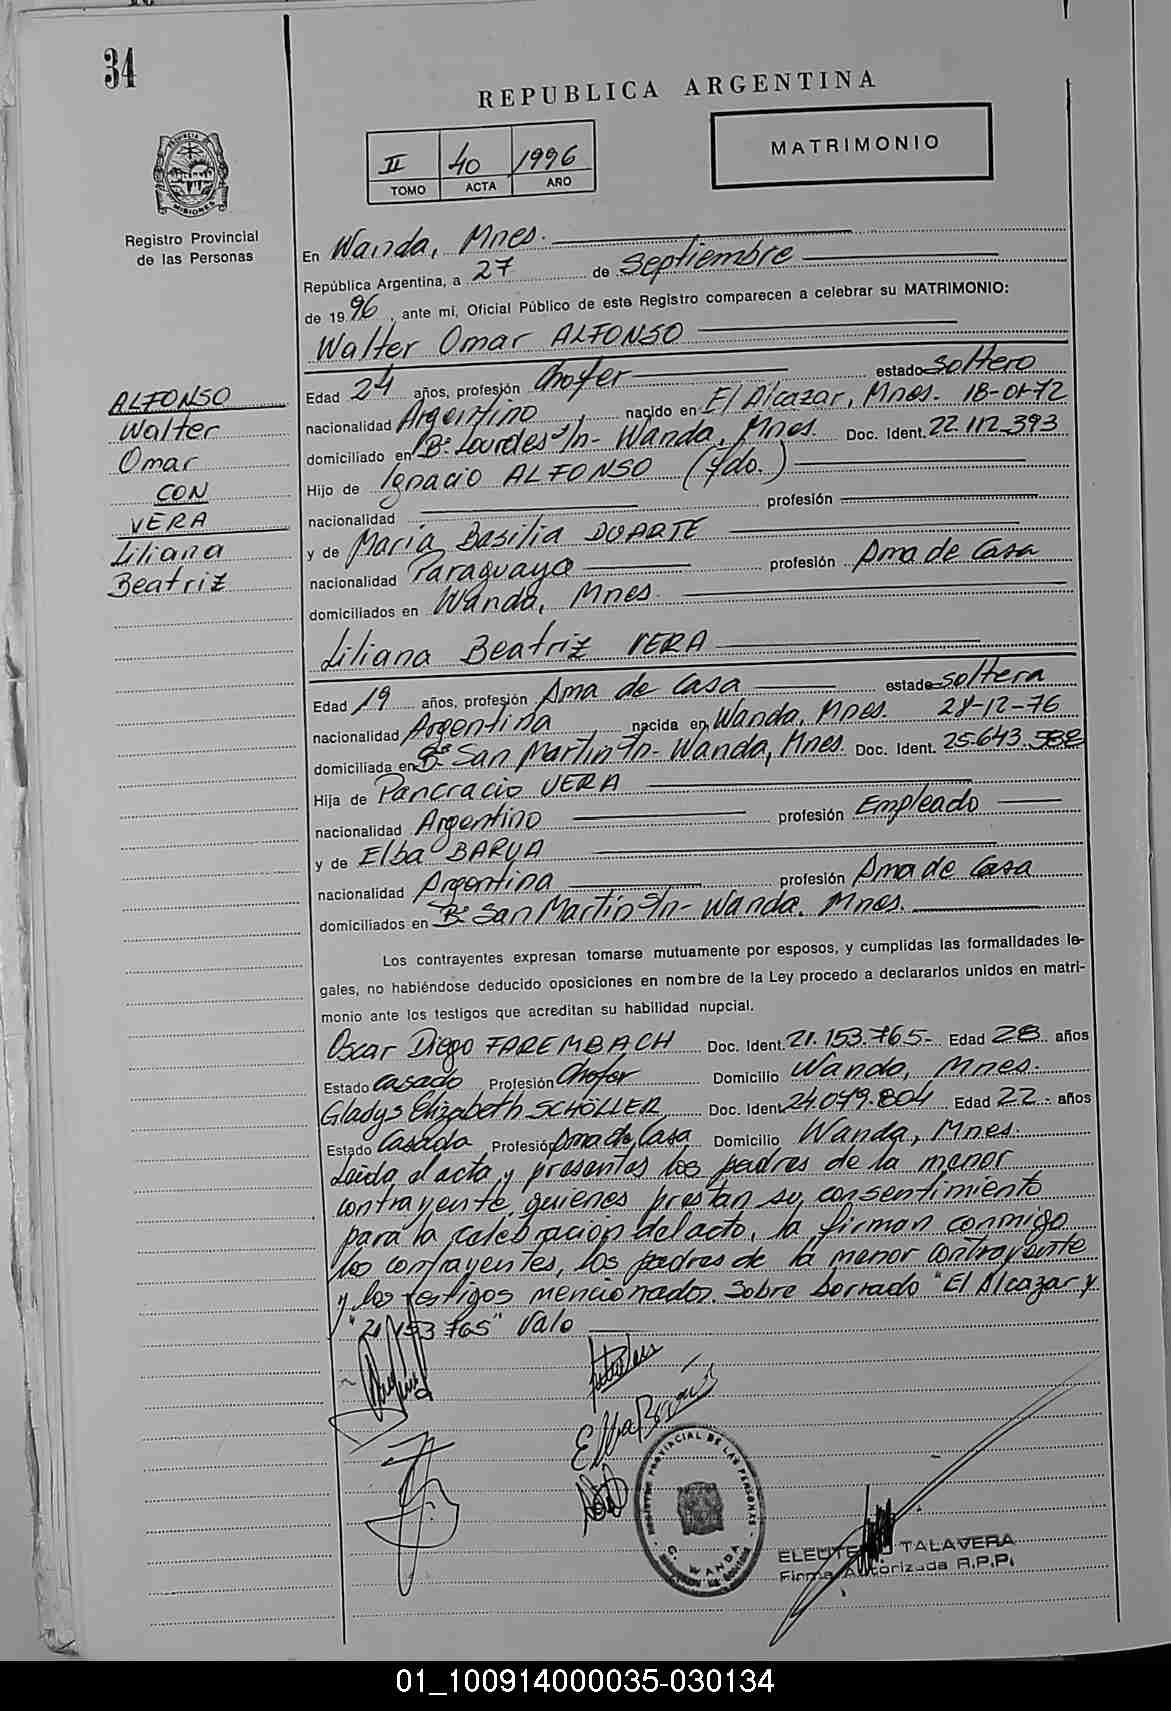 34
REPUBLICA ARGENTINA
II 40 1996
TOMO ACTA AÑO
MATRIMONIO
PROVINCIA
MISIONES
Registro Provincial
de las Personas
ALFONSO
Walter
Omar
CON
VERA
Liliana
Beatriz
En Wanda, Mnes.
República Argentina, a 27 de Septiembre
de 1996, ante mi, Oficial Público de este Registro comparecen a celebrar su MATRIMONIO:
Walter Omar ALFONSO
Edad 24 años, profesión Chofer estado soltero
nacionalidad Argentino nacido en El Alcazar, Mnes. 18-01-72
domiciliado en Bº Lourdes S/n- Wanda, Mnes. Doc. Ident. 22.112.393
Hijo de Ignacio ALFONSO (fdo.)
nacionalidad profesión
y de María Basilia DUARTE
nacionalidad Paraguaya profesión Ama de Casa
domiciliados en Wanda, Mnes.
Liliana Beatriz VERA
Edad 19 años, profesión Ama de Casa estado soltera
nacionalidad Argentina nacida en Wanda, Mnes. 28-12-76
domiciliada en Bº San Martin S/n- Wanda, Mnes. Doc. Ident. 25.643.582
Hija de Pancracio VERA
nacionalidad Argentino profesión Empleado
y de Elba BARUA
nacionalidad Argentina profesión Ama de Casa
domiciliados en Bº San Martin S/n- Wanda, Mnes.
Los contrayentes expresan tomarse mutuamente por esposos, y cumplidas las formalidades le-
gales, no habiéndose deducido oposiciones en nombre de la Ley procedo a declararlos unidos en matri-
monio ante los testigos que acreditan su habilidad nupcial.
Oscar Diego FAREMBACH Doc. Ident. 21.153.765- Edad 28 años
Estado Casado Profesión Chofer Domicilio Wanda, Mnes.
Gladys Elizabeth SCHÖLLER Doc. Ident 24.079.804 Edad 22.- años
Estado Casada Profesión Ama de Casa Domicilio Wanda, Mnes.
Leída el acta y presentes los padres de la menor
contrayente, quienes prestan su consentimiento
para la celebración del acto, la firman conmigo
los contrayentes, los padres de la menor contrayente
y los testigos mencionados. Sobre borrado "El Alcazar y
"21.153.765" Vale
Elba
REGISTRO PROVINCIAL DE LAS PERSONAS
WANDA
ELEUTERIO TALAVERA
Firma Autorizada R.P.P.
01_100914000035-030134